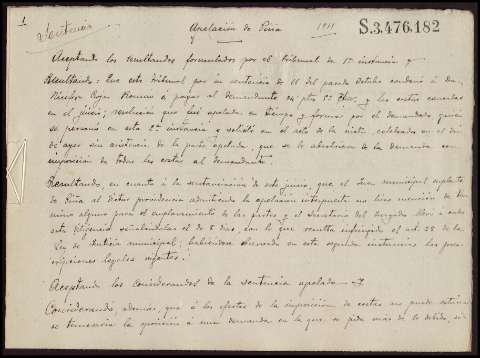 1
Sentencia
Apelación de Piña
1911
S.3.476.182
Aceptando los resultandos formulados por el tribunal de 1ª instancia y
Resultando: Que este tribunal por su sentencia de 11 del pasado Octubre condenó á Don
Nicolás Rojo Romero á pagar al demandante ptas y las costas causadas
en el juicio; resolución que fué apelada en tiempo y forma por el demandado quien
se personó en esta 2ª instancia y solicitó en el acto de la vista, celebrado en el dia
de ayer sin asistencia de la parte apelada, que se le absolviera de la demanda con
imposición de todas las costas al demandante.
Resultando, en cuanto á la sustanciación de este juicio, que el Juez municipal suplente
de Piña al dictar providencia admitiendo la apelación interpuesta no hizo mención de tér
mino alguno para el emplazamiento de las partes y el Secretario del Juzgado libró á
esta diligencia señalándolas el de 8 dias, con lo que resulta infringido el art. 28 de la
Ley de Justicia municipal; habiéndose observado en esta segunda instancia las pres
cripciones legales vigentes.
Aceptando los considerandos de la sentencia apelada y
Considerando, además, que á los efectos de la imposición de costas no puede estima
se temeraria la oposición á una demanda en la que se pide más de lo debido, sin